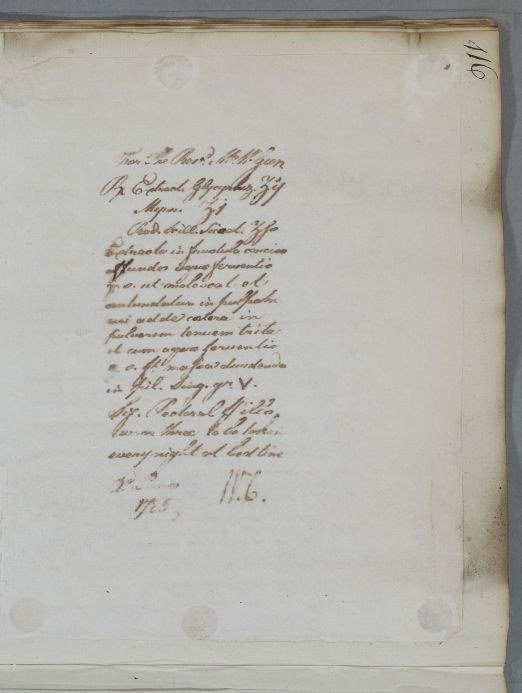 416
For the Revd. Mr.
Rx Extract. Glycyrrhiz. ℥ij
Myrrh. ʒj
Rad. Scill. Siccat.
Extracta in frustula concisa
affunde aquæ ferventis
q. s. ut molescat et
contundatur in pulpam
cui adde cætera in
pulverem tenuem trita
et cum aqua ferventis
q. s. ft. massa dividenda
in Pil. sing. gr V.
Sig. Pectoral Pills,
two or three to be taken
every night at bed time
W. C.